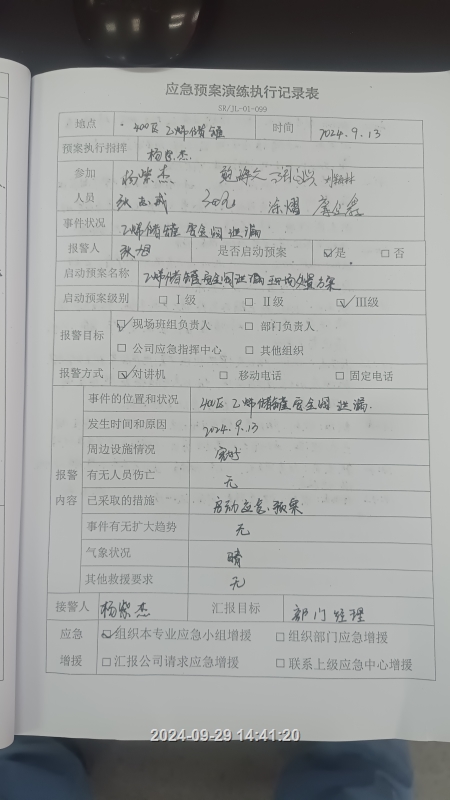 应急预案演练执行记录表
SR/JL-01-099
地点 400区乙烯储罐 时间 2024.9.13
预案执行指挥 杨紫杰
参加 杨紫杰
人员
事件状况 乙烯储罐安全阀泄漏
报警人 是否启动预案 ☑是 □否
启动预案名称 乙烯储罐安全阀泄漏现场处置方案
启动预案级别 □Ⅰ级 □Ⅱ级 ☑Ⅲ级
报警目标 ☑现场班组负责人 □部门负责人
□公司应急指挥中心 □其他组织
报警方式 ☑对讲机 □移动电话 □固定电话
事件的位置和状况 400区乙烯储罐安全阀泄漏.
发生时间和原因 2024.9.13
周边设施情况 完好
报警 有无人员伤亡 无
内容 已采取的措施 启动应急预案
事件有无扩大趋势 无
气象状况 晴
其他救援要求 无
接警人 杨紫杰 汇报目标 部门经理
应急 ☑组织本专业应急小组增援 □组织部门应急增援
增援 □汇报公司请求应急增援 □联系上级应急中心增援
2024-09-29 14:41:20